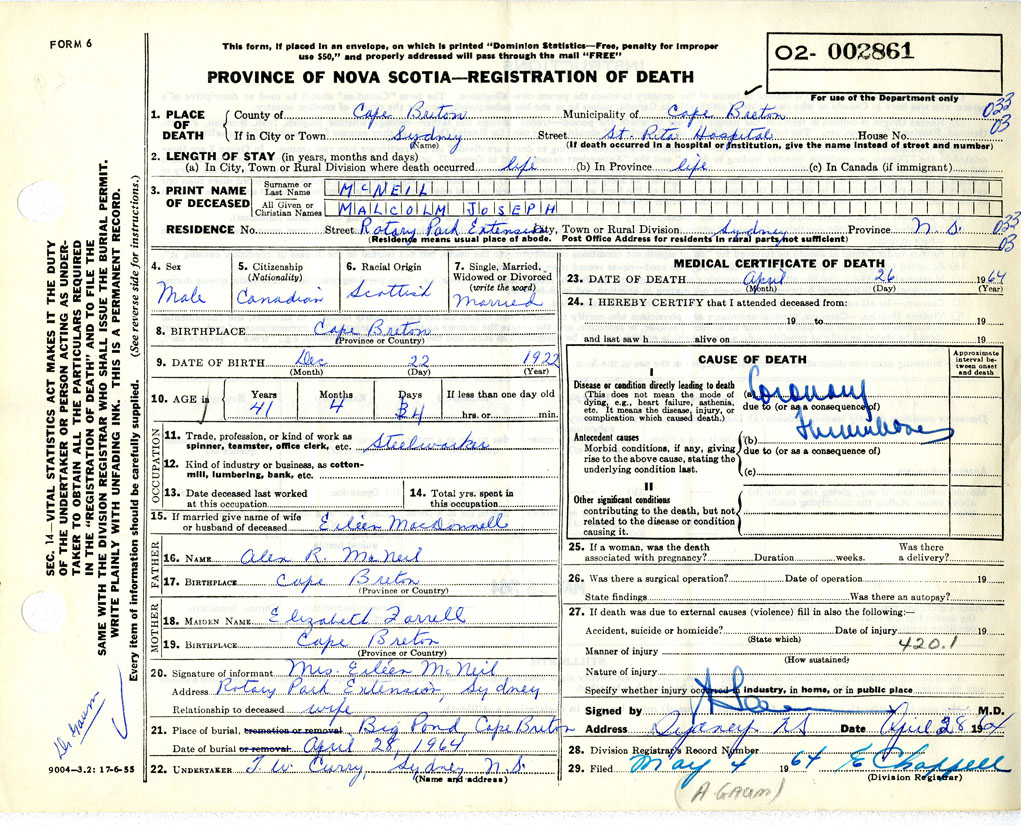 FORM 6
This form, if placed in an envelope, on which is printed "Dominion Statistics—Free, penalty for improper
use $50," and properly addressed will pass through the mail "FREE"
O2- 002861
PROVINCE OF NOVA SCOTIA—REGISTRATION OF DEATH
For use of the Department only
033
03
1. PLACE OF DEATH
County of Cape Breton Municipality of Cape Breton
If in City or Town Sydney Street St. Rita Hospital House No.
(Name) (If death occurred in a hospital or institution, give the name instead of street and number)
2. LENGTH OF STAY (in years, months and days)
(a) In City, Town or Rural Division where death occurred life (b) In Province life (c) In Canada (if immigrant)
3. PRINT NAME OF DECEASED
Surname or Last Name McNEIL
All Given or Christian Names MALCOLM JOSEPH
RESIDENCE No. Street Rotary Park Extension City, Town or Rural Division Sydney Province N.S.
(Residence means usual place of abode. Post Office Address for residents in rural parts not sufficient)
033
03
4. Sex
Male
5. Citizenship
(Nationality)
Canadian
6. Racial Origin
Scottish
7. Single, Married, Widowed or Divorced
(write the word)
Married
8. BIRTHPLACE Cape Breton
(Province or Country)
9. DATE OF BIRTH Dec 22 1922
(Month) (Day) (Year)
10. AGE in Years Months Days If less than one day old
41 4 4 hrs. or min.
OCCUPATION
11. Trade, profession, or kind of work as
spinner, teamster, office clerk, etc. Steelworker
12. Kind of industry or business, as cotton-
mill, lumbering, bank, etc.
13. Date deceased last worked
at this occupation
14. Total yrs. spent in
this occupation
15. If married give name of wife
or husband of deceased Eileen MacDonnell
FATHER
16. NAME Alex R. McNeil
17. BIRTHPLACE Cape Breton
(Province or Country)
MOTHER
18. MAIDEN NAME Elizabeth Farrell
19. BIRTHPLACE Cape Breton
(Province or Country)
20. Signature of informant Mrs. Eileen McNeil
Address Rotary Park Extension, Sydney
Relationship to deceased wife
21. Place of burial, cremation or removal Big Pond Cape Breton
Date of burial or removal April 28, 1964
22. UNDERTAKER T. W. Curry, Sydney N.S.
(Name and address)
MEDICAL CERTIFICATE OF DEATH
23. DATE OF DEATH April 26 1964
(Month) (Day) (Year)
24. I HEREBY CERTIFY that I attended deceased from:
19 to 19
and last saw h alive on 19
CAUSE OF DEATH
Approximate interval between onset and death
I
Disease or condition directly leading to death
(This does not mean the mode of
dying, e.g., heart failure, asthenia,
etc. It means the disease, injury, or
complication which caused death.)
(a) Coronary
due to (or as a consequence of)
Thrombosis
Antecedent causes
Morbid conditions, if any, giving
rise to the above cause, stating the
underlying condition last.
(b)
due to (or as a consequence of)
(c)
II
Other significant conditions
contributing to the death, but not
related to the disease or condition
causing it.
25. If a woman, was the death Was there
associated with pregnancy? Duration weeks. a delivery?
26. Was there a surgical operation? Date of operation 19
State findings Was there an autopsy?
27. If death was due to external causes (violence) fill in also the following:—
Accident, suicide or homicide? Date of injury 19
(State which)
420.1
Manner of injury
(How sustained)
Nature of injury
Specify whether injury occurred in industry, in home, or in public place
Signed by M.D.
Address Sydney NS Date April 28 1964
28. Division Registrar's Record Number
29. Filed May 4 1964 E Chappell
(Division Registrar)
(A GAUM)
SEC. 14—VITAL STATISTICS ACT MAKES IT THE DUTY
OF THE UNDERTAKER OR PERSON ACTING AS UNDER-
TAKER TO OBTAIN ALL THE PARTICULARS REQUIRED
IN THE "REGISTRATION OF DEATH" AND TO FILE THE
SAME WITH THE DIVISION REGISTRAR WHO SHALL ISSUE THE BURIAL PERMIT.
WRITE PLAINLY WITH UNFADING INK. THIS IS A PERMANENT RECORD.
Every item of information should be carefully supplied. (See reverse side for instructions.)
Dr. Gaum
9004—3.2: 17-6-55